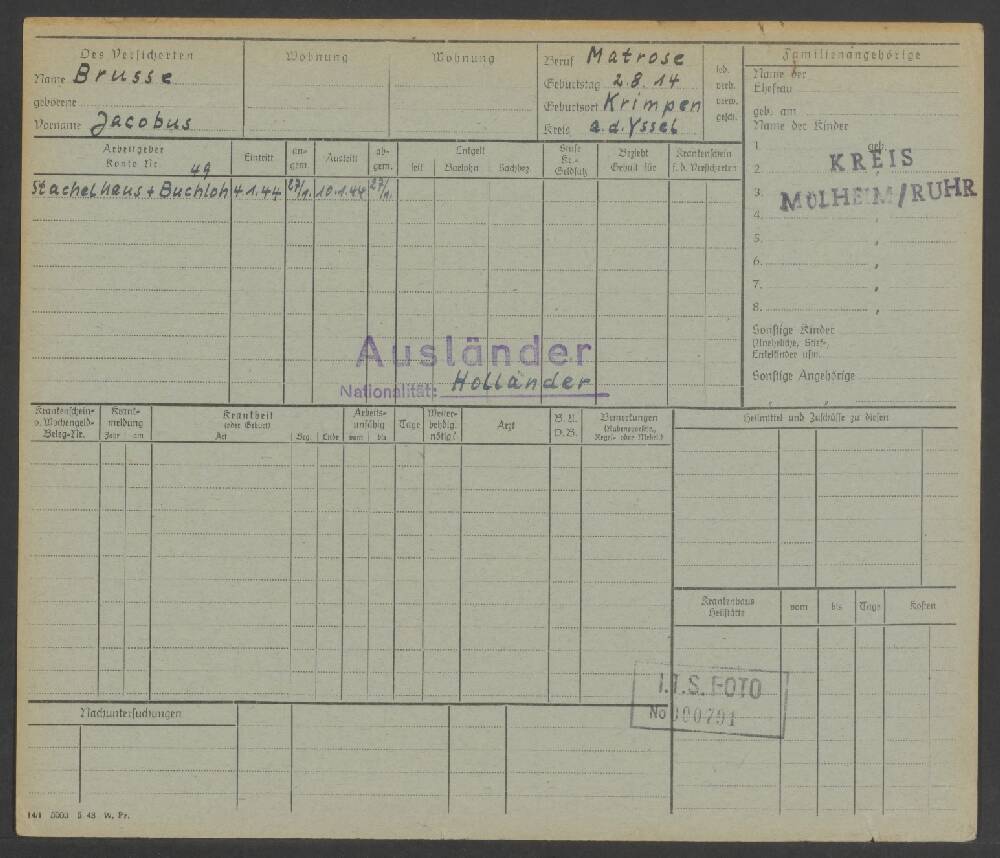 Des Versicherten
Name Brusse
geborene
Vorname Jacobus
Wohnung
Wohnung
Beruf Matrose
Geburtstag 2.8.14
Geburtsort Krimpen
Kreis a.d.Yssel
led.
verh.
verw.
gesch.
Familienangehörige
Name der
Ehefrau
geb. am
Name der Kinder
geb.
1.
2.
3.
4.
5.
6.
7.
8.
KREIS
MÜLHEIM/RUHR
Sonstige Kinder
(Uneheliche, Stief-,
Enkelkinder usw.
Sonstige Angehörige
Arbeitgeber
Konto Nr. 49
Eintritt
an-
gem.
Austritt
ab-
gem.
Entgelt
seit Barlohn Sachbez.
Stufe
Kr.-
Geldsatz
Bezieht
Gehalt für
Krankenschein
f. d. Versicherten
Stachelhaus + Buchloh 4.1.44 27/1. 10.1.44 27/1.
Ausländer
Nationalität: Holländer
Krankenschein-
o. Wochengeld-
Beleg-Nr.
Krank-
meldung
Jahr am
Krankheit
(oder Geburt)
Art Beg. Ende
Arbeits-
unfähig
vom bis
Tage
Weiter-
behdlg.
nötig?
Arzt
B. U.
D. B.
Bemerkungen
Heilmittel und Zuschüsse zu diesen
Krankenhaus
Heilstätte
vom
bis
Tage
Kosten
I.T.S. FOTO
No 000791
Nachuntersuchungen
14/1 5000 5 43 W. Pr.